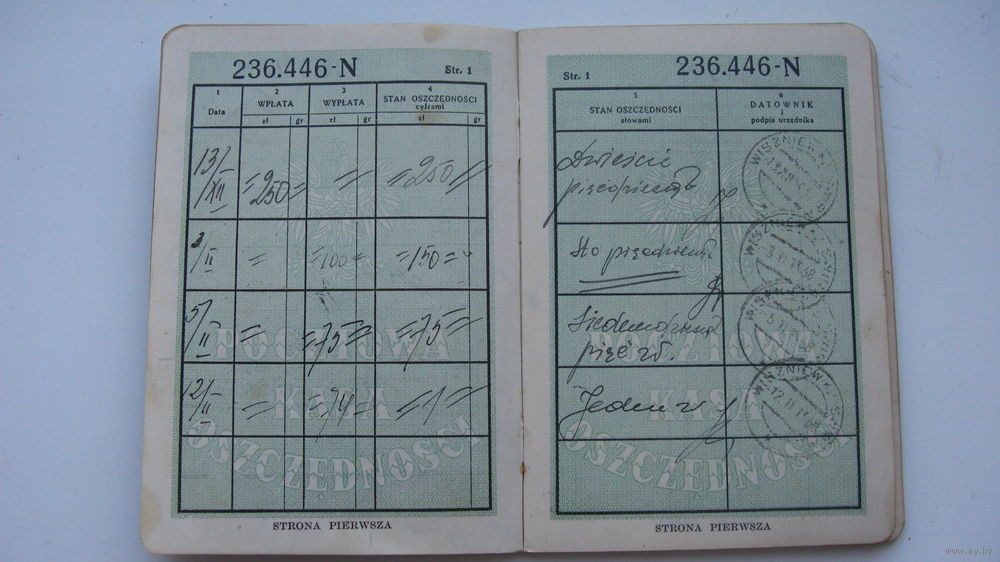 236.446-N
Str. 1
1
Data
2
WPŁATA
zł gr
3
WYPŁATA
zł gr
4
STAN OSZCZĘDNOŚCI
cyframi
zł gr
13/XII =250= = =250=
3/II = =100= =150=
5/II = =75= =75=
12/II = =74= =1=
POCZTOWA
KASA
OSZCZĘDNOŚCI
STRONA PIERWSZA
Str. 1
236.446-N
5
STAN OSZCZĘDNOŚCI
słowami
6
DATOWNIK
i
podpis urzędnika
Dwieście
pięćdziesiąt
Sto pięćdziesiąt
Siedemdziesiąt
pięć zł.
Jeden zł
WISZNIEW
WISZNIEW
WISZNIEW
WISZNIEW
12 II
POCZTOWA
KASA
OSZCZĘDNOŚCI
STRONA PIERWSZA
www.ay.by